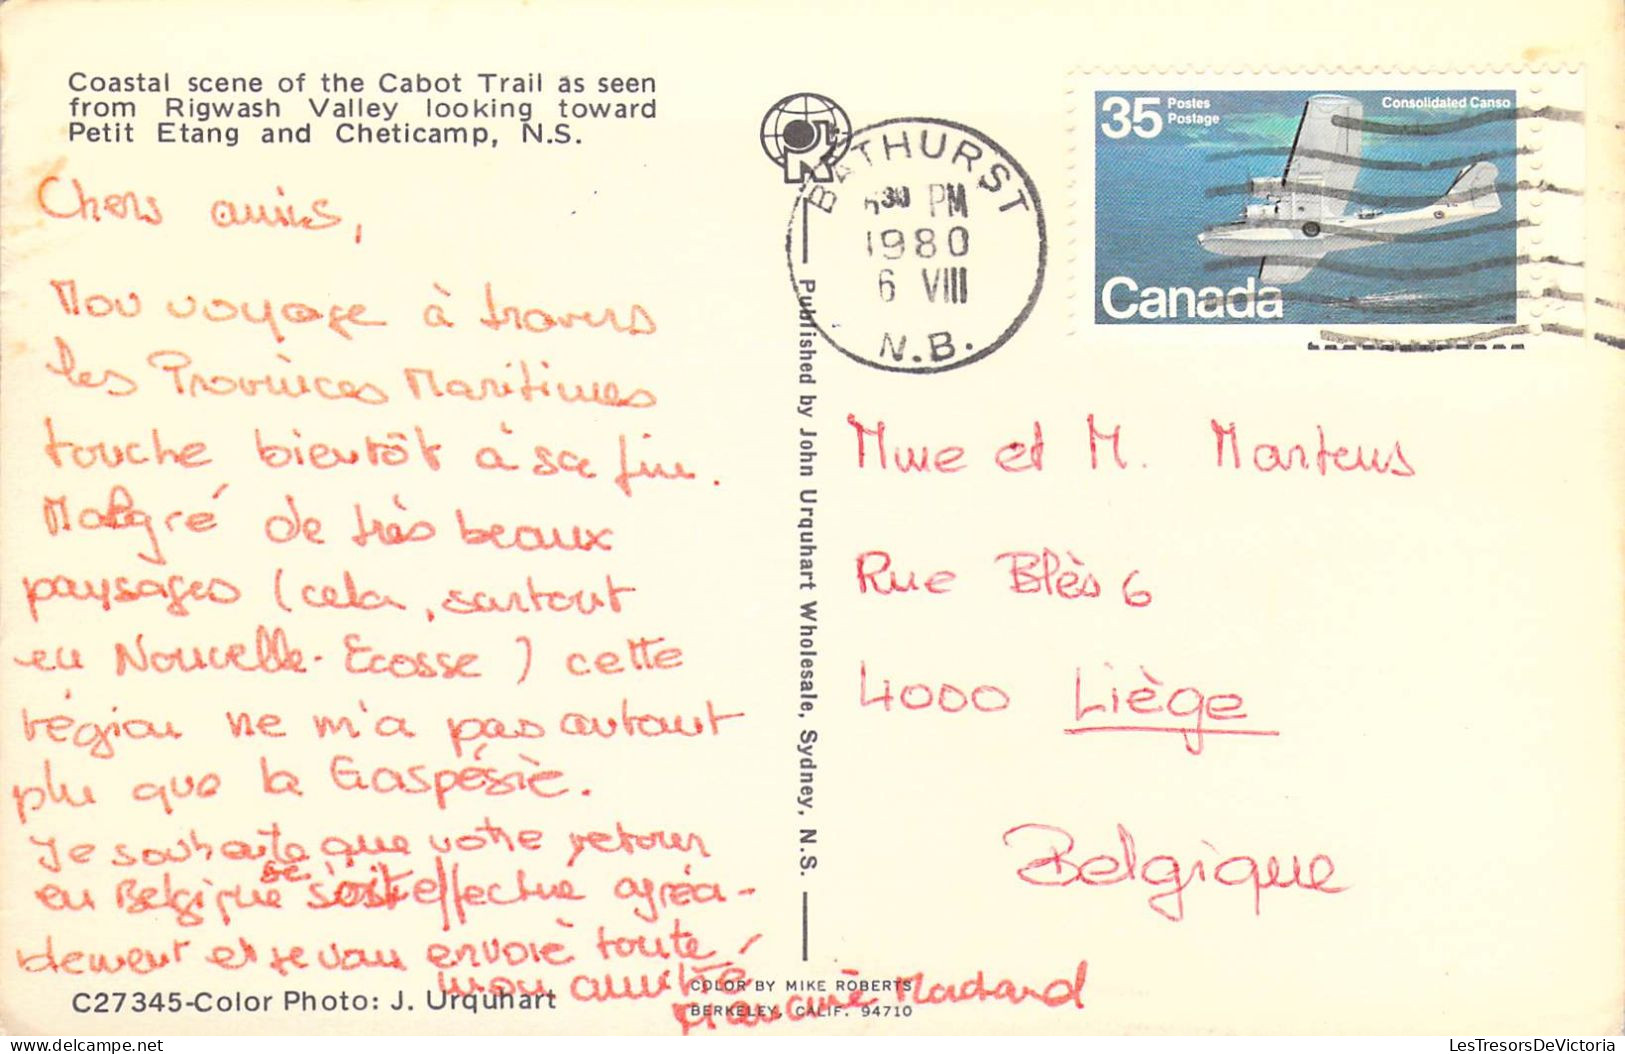 Coastal scene of the Cabot Trail as seen
from Rigwash Valley looking toward
Petit Etang and Cheticamp, N.S.
Chers amis,
Mon voyage à travers
les Provinces Maritimes
touche bientôt à sa fin.
Malgré de très beaux
paysages (cela, surtout
en Nouvelle-Ecosse) cette
région ne m'a pas autant
plu que la Gaspésie.
Je souhaite que votre retour
en Belgique se soit effectué agréa-
blement et je vous envoie toute
mon amitié
Francine
C27345-Color Photo: J. Urquhart
Published by John Urquhart Wholesale, Sydney, N.S.
COLOR BY MIKE ROBERTS
BERKELEY, CALIF. 94710
BATHURST
30 PM
1980
6 VIII
N.B.
35 Postes
Postage
Consolidated Canso
Canada
Mme et M. Martens
Rue Blès 6
4000 Liège
Belgique
LesTresorsDeVictoria
delcampe.net